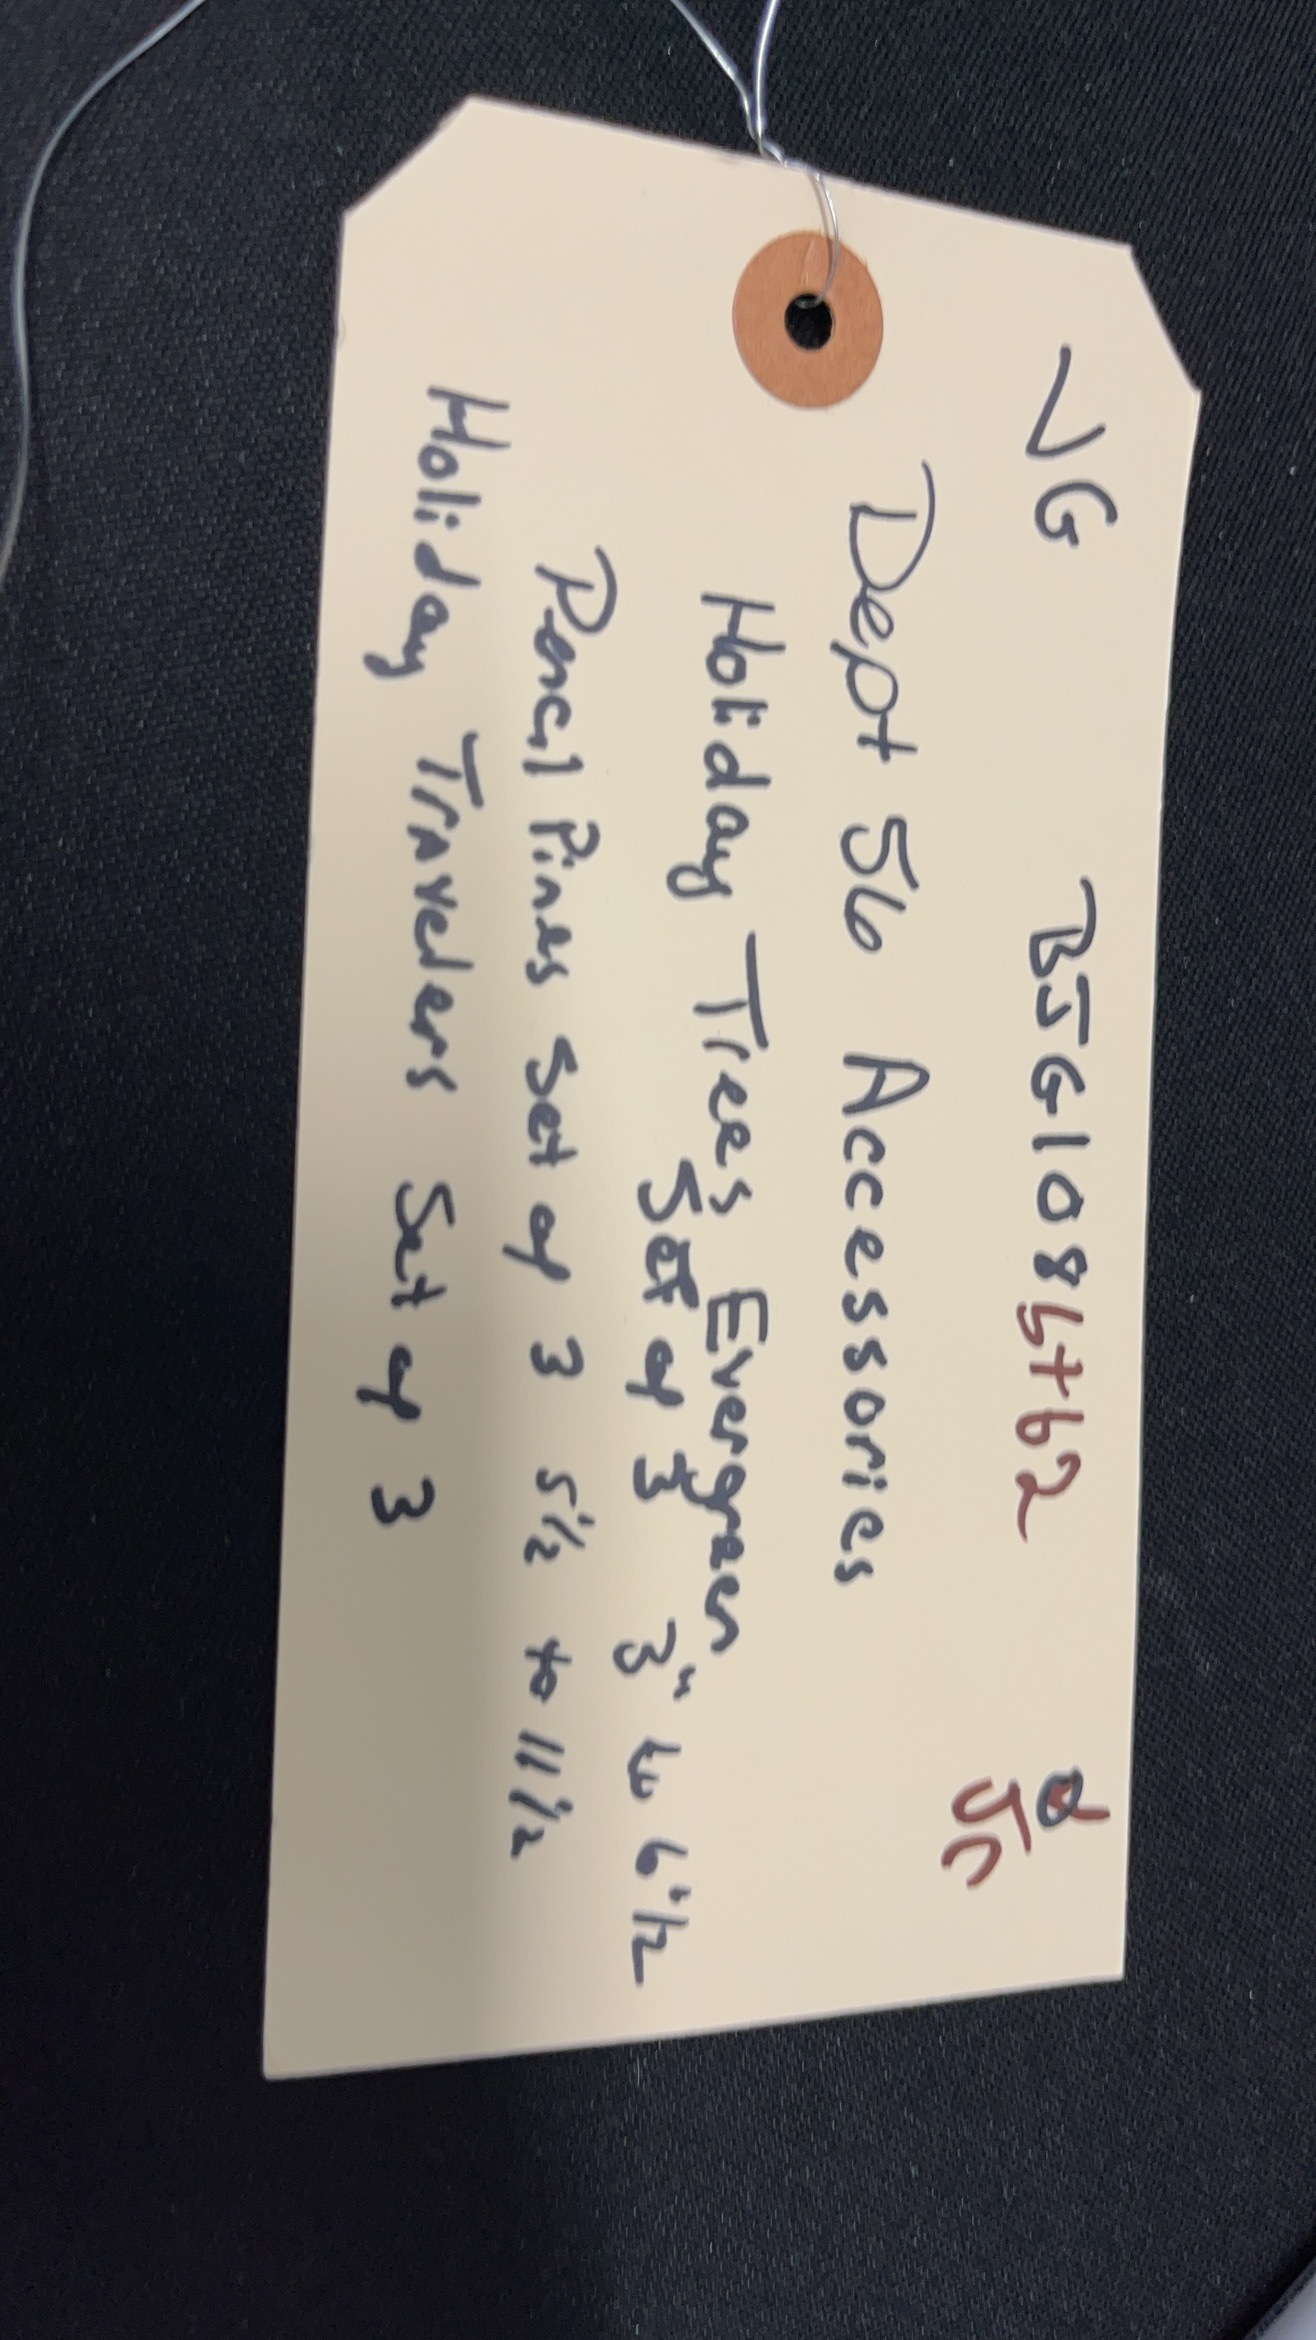 VG BJG108 b+b2
Dept 56 Accessories
Holiday Trees Evergreen
Set of 3 3" to 6 1/2
Pencil Pines Set of 3 5 1/2 to 11 1/2
Holiday Travelers Set of 3